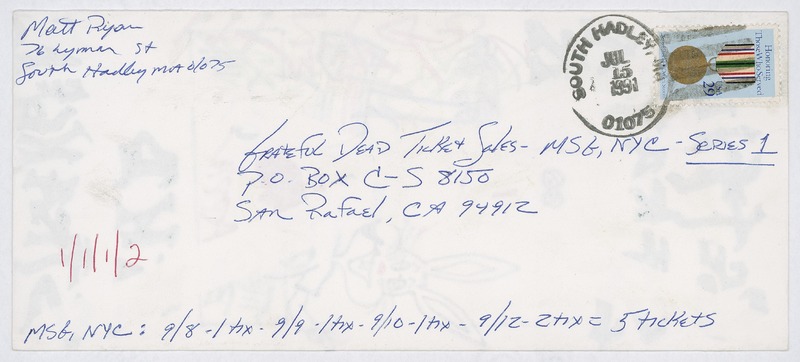 Matt Ryan
76 Lyman St
South Hadley MA 01075
SOUTH HADLEY, MA
JUL
15
1991
01075
Honoring
Those Who Served
USA
29
Grateful Dead Ticket Sales - MSG, NYC - Series 1
P.O. Box C-S 8150
San Rafael, CA 94912
1/1/1/2
MSG, NYC: 9/8 - 1 tix - 9/9 - 1 tix - 9/10 - 1 tix - 9/12 - 2 tix = 5 tickets